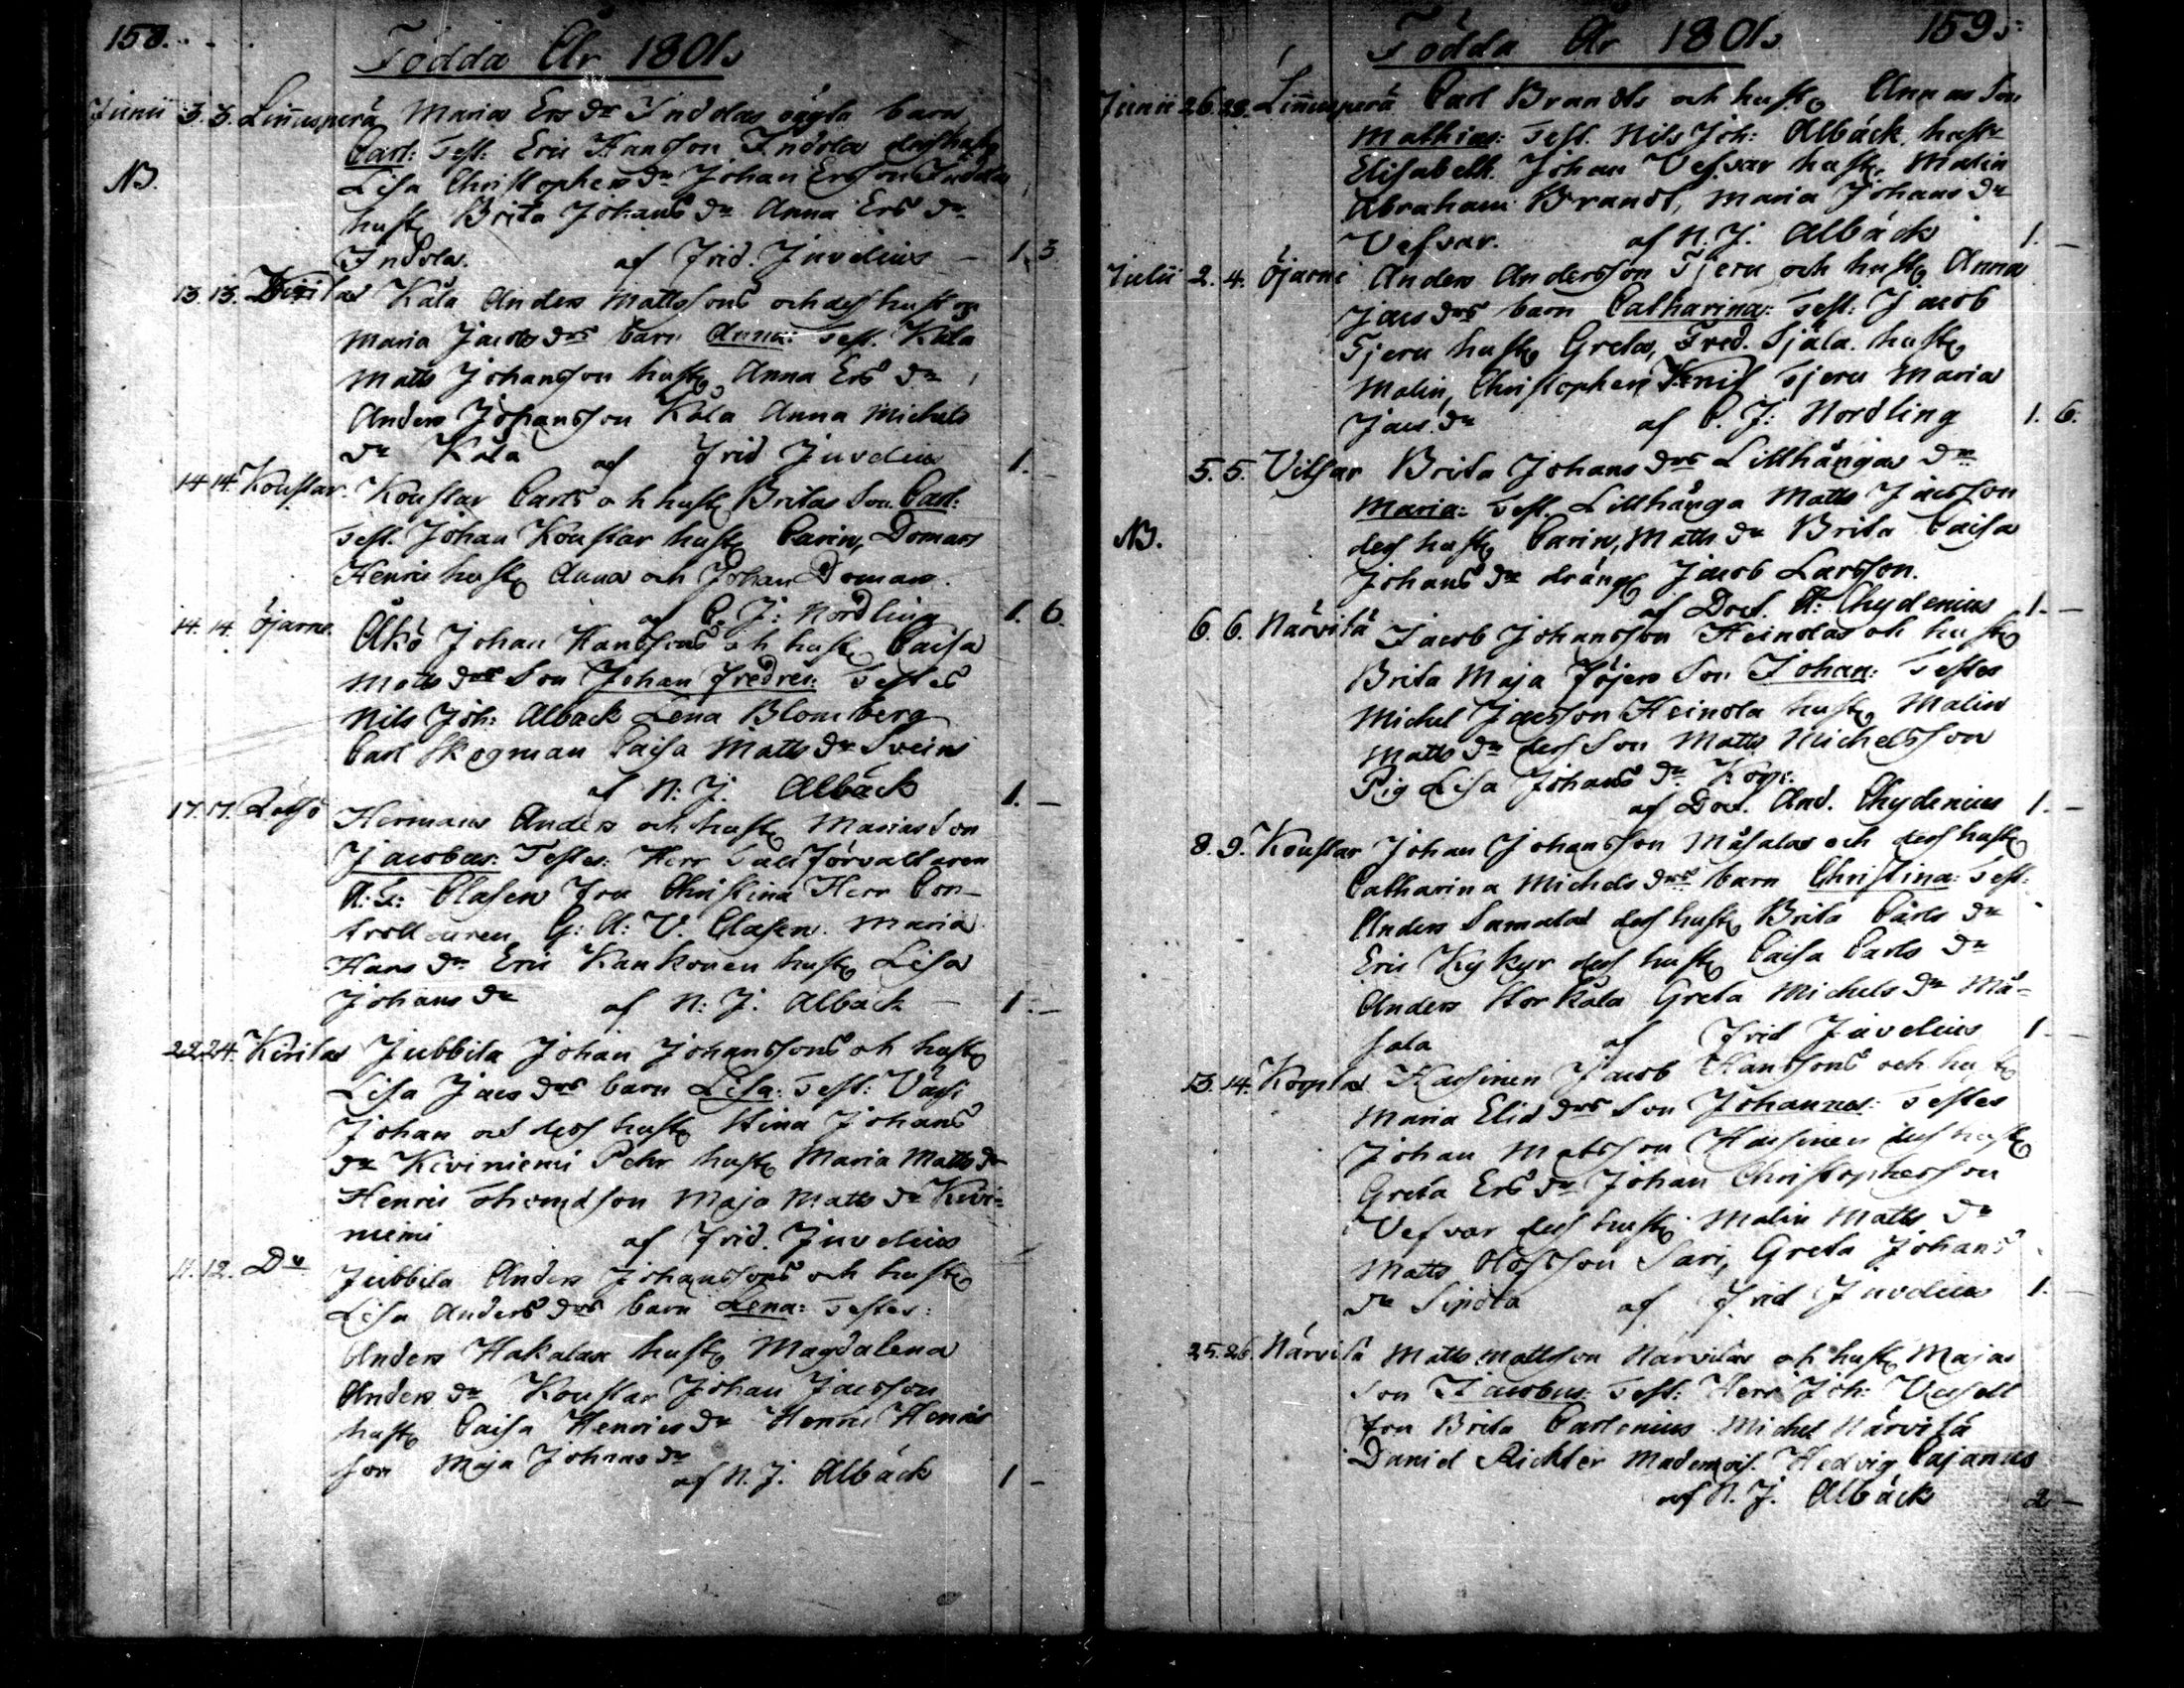 158.
Födda År 1801.
Junii 3. 3. Linnusperä Maria Ers dr Indolas oägta barn
Carl: Test: Eric Hansson Indola dess hustr
NB. Lisa Christophers dr Johan Ersson Indolas
hustr Brita Johans dr Anna Ers dr
Indola. af Frid. Juvelius — 1. 3
13. 13. Kåla Anders Mattsons och dess hustr
Maria Jacobs drs barn Anna: Test. Kåla
Matts Johansson hustr Anna Ers dr
Anders Johansson Kåla Anna Michels
dr Kåla af Frid Juvelius 1. —
14 14. Koustar. Koustar Carls och hustr Britas Son Carl:
Test. Johan Koustar hustr Carin, Domars
Henric hustr Anna och Johan Domars.
af C. J: Nordling 1. 6.
14. 14. Öjarne. Åkö Johan Hanssons och hustr Caisa
Matts drs Son Johan Fredric: Testes
Nils Joh: Albäck Lena Blomberg
Carl Skogman Caisa Matts dr Sveins
af N: J. Albäck 1. —
17. 17. Hermans Anders och hustr Marias Son
Jacobus: Testes: Herr Förvaltaren
Clasen Fru Christina Herr Con-
trolleuren G: A: V. Clasen. Maria
Hans dr Eric Kankonen hustr Lisa
Johans dr af N: J. Albäck — 1. —
22. 24. Kivilas Jubbila Johan Johanssons och hustr
Lisa Jacs drs barn Lisa: Test:
Johan och dess hustr Stina Johans
dr Kiviniemi Pehr hustr Maria Matts dr
Henric Thomasson Maja Matts dr Kivi-
niemi af Frid. Juvelius
11. 12. Do Jubbila Anders Johanssons och hustr
Lisa Anders drs barn Lena: Testes:
Anders Hakalax hustr Magdalena
Anders dr Koustar Johan Jacsson
hustr Caisa Henrics dr Henric Henric
son Maja Johans dr
af N. J. Albäck 1 —
159.
Födda År 1801.
Junii 26. 28. Linnusperä Carl Brandts och hustr Annas Son
Mathias: Test. Nils Joh: Albäck hustr
Elisabeth. Johan Vesvar hustr Malin
Abraham Brandt, Maria Johans dr
Vesvar. af N. J. Albäck 1. —
Julii 2. 4. Öjarne Anders Andersson Tjeru och hustr Anna
Jacs drs barn Catharina: Test: Jacob
Tjeru hustr Greta, Fred. Sjåla hustr
Malin, Christopher Tjeru Maria
Jacs dr af C. J: Nordling 1. 6.
5. 5. Vitsar Brita Johans drs Lillhångas dr
Maria: Test. Lillhånga Matts Jacsson
NB. dess hustr Carin, Matts dr Brita Caisa
Johans dr dräng Jacob Larsson.
af Doct. A: Chydenius 1. —
6. 6. Närvilä Jacob Johansson Heinolas och hustr
Brita Maja Son Johan: Testes
Michel Jacsson Heinola hustr Malin
Matts dr dess Son Matts Michelsson
Pig Lisa Johans dr
af Doct. And. Chydenius 1. —
8. 9. Koustar Johan Johansson Måsalas och dess hustr
Catharina Michels drs barn Christina: Test:
Anders Samalad dess hustr Brita Carls dr
Eric Kykyr dess hustr Caisa Carls dr
Anders Storkåla Greta Michels dr Må-
sala af Frid Juvelius 1. —
13. 14. Korpla Hassinen Jacob Hanssons och hustr
Maria Elid drs Son Johannes: Testes
Johan Matsson Hassinen dess hustr
Greta Ers dr Johan Christophersson
Vesvar dess hustr Malin Matts dr
Matts Olofsson Sari, Greta Johans
dr Sipola af Frid Juvelius 1. —
25. 26. Närvilä Matts Mattsson Närvilas och hustr Majas
Son Jacobus: Test: Herr Joh:
Fru Brita Carlenius Michel Närvilä
Daniel Richter Mademois. Hedvig Cajanus
af N. J. Albäck 2 —